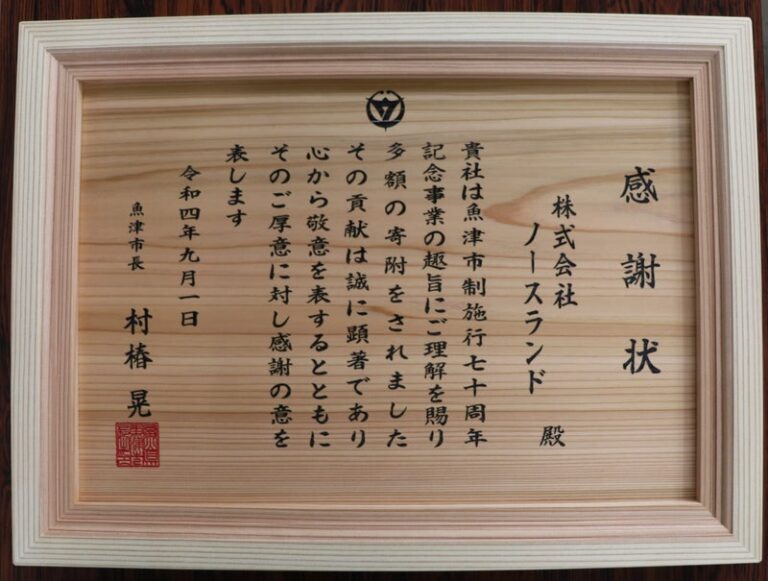 感謝状
株式会社
ノースランド 殿
貴社は魚津市制施行七十周年
記念事業の趣旨にご理解を賜り
多額の寄附をされました
その貢献は誠に顕著であり
心から敬意を表するとともに
そのご厚意に対し感謝の意を
表します
令和四年九月一日
魚津市長 村椿晃